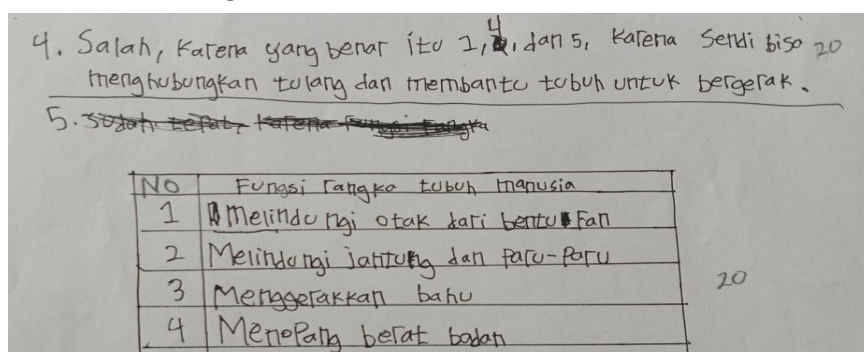 4. Salah, Karena yang benar itu 1, 4, dan 5, Karena Sendi bisa 20
menghubungkan tulang dan membantu tubuh untuk bergerak.
5. sudah tepat, karena fungsi rangka
NO Fungsi rangka tubuh manusia
1 Melindungi otak dari benturan
2 Melindungi jantung dan paru-paru
3 Menggerakkan bahu
20
4 Menopang berat badan